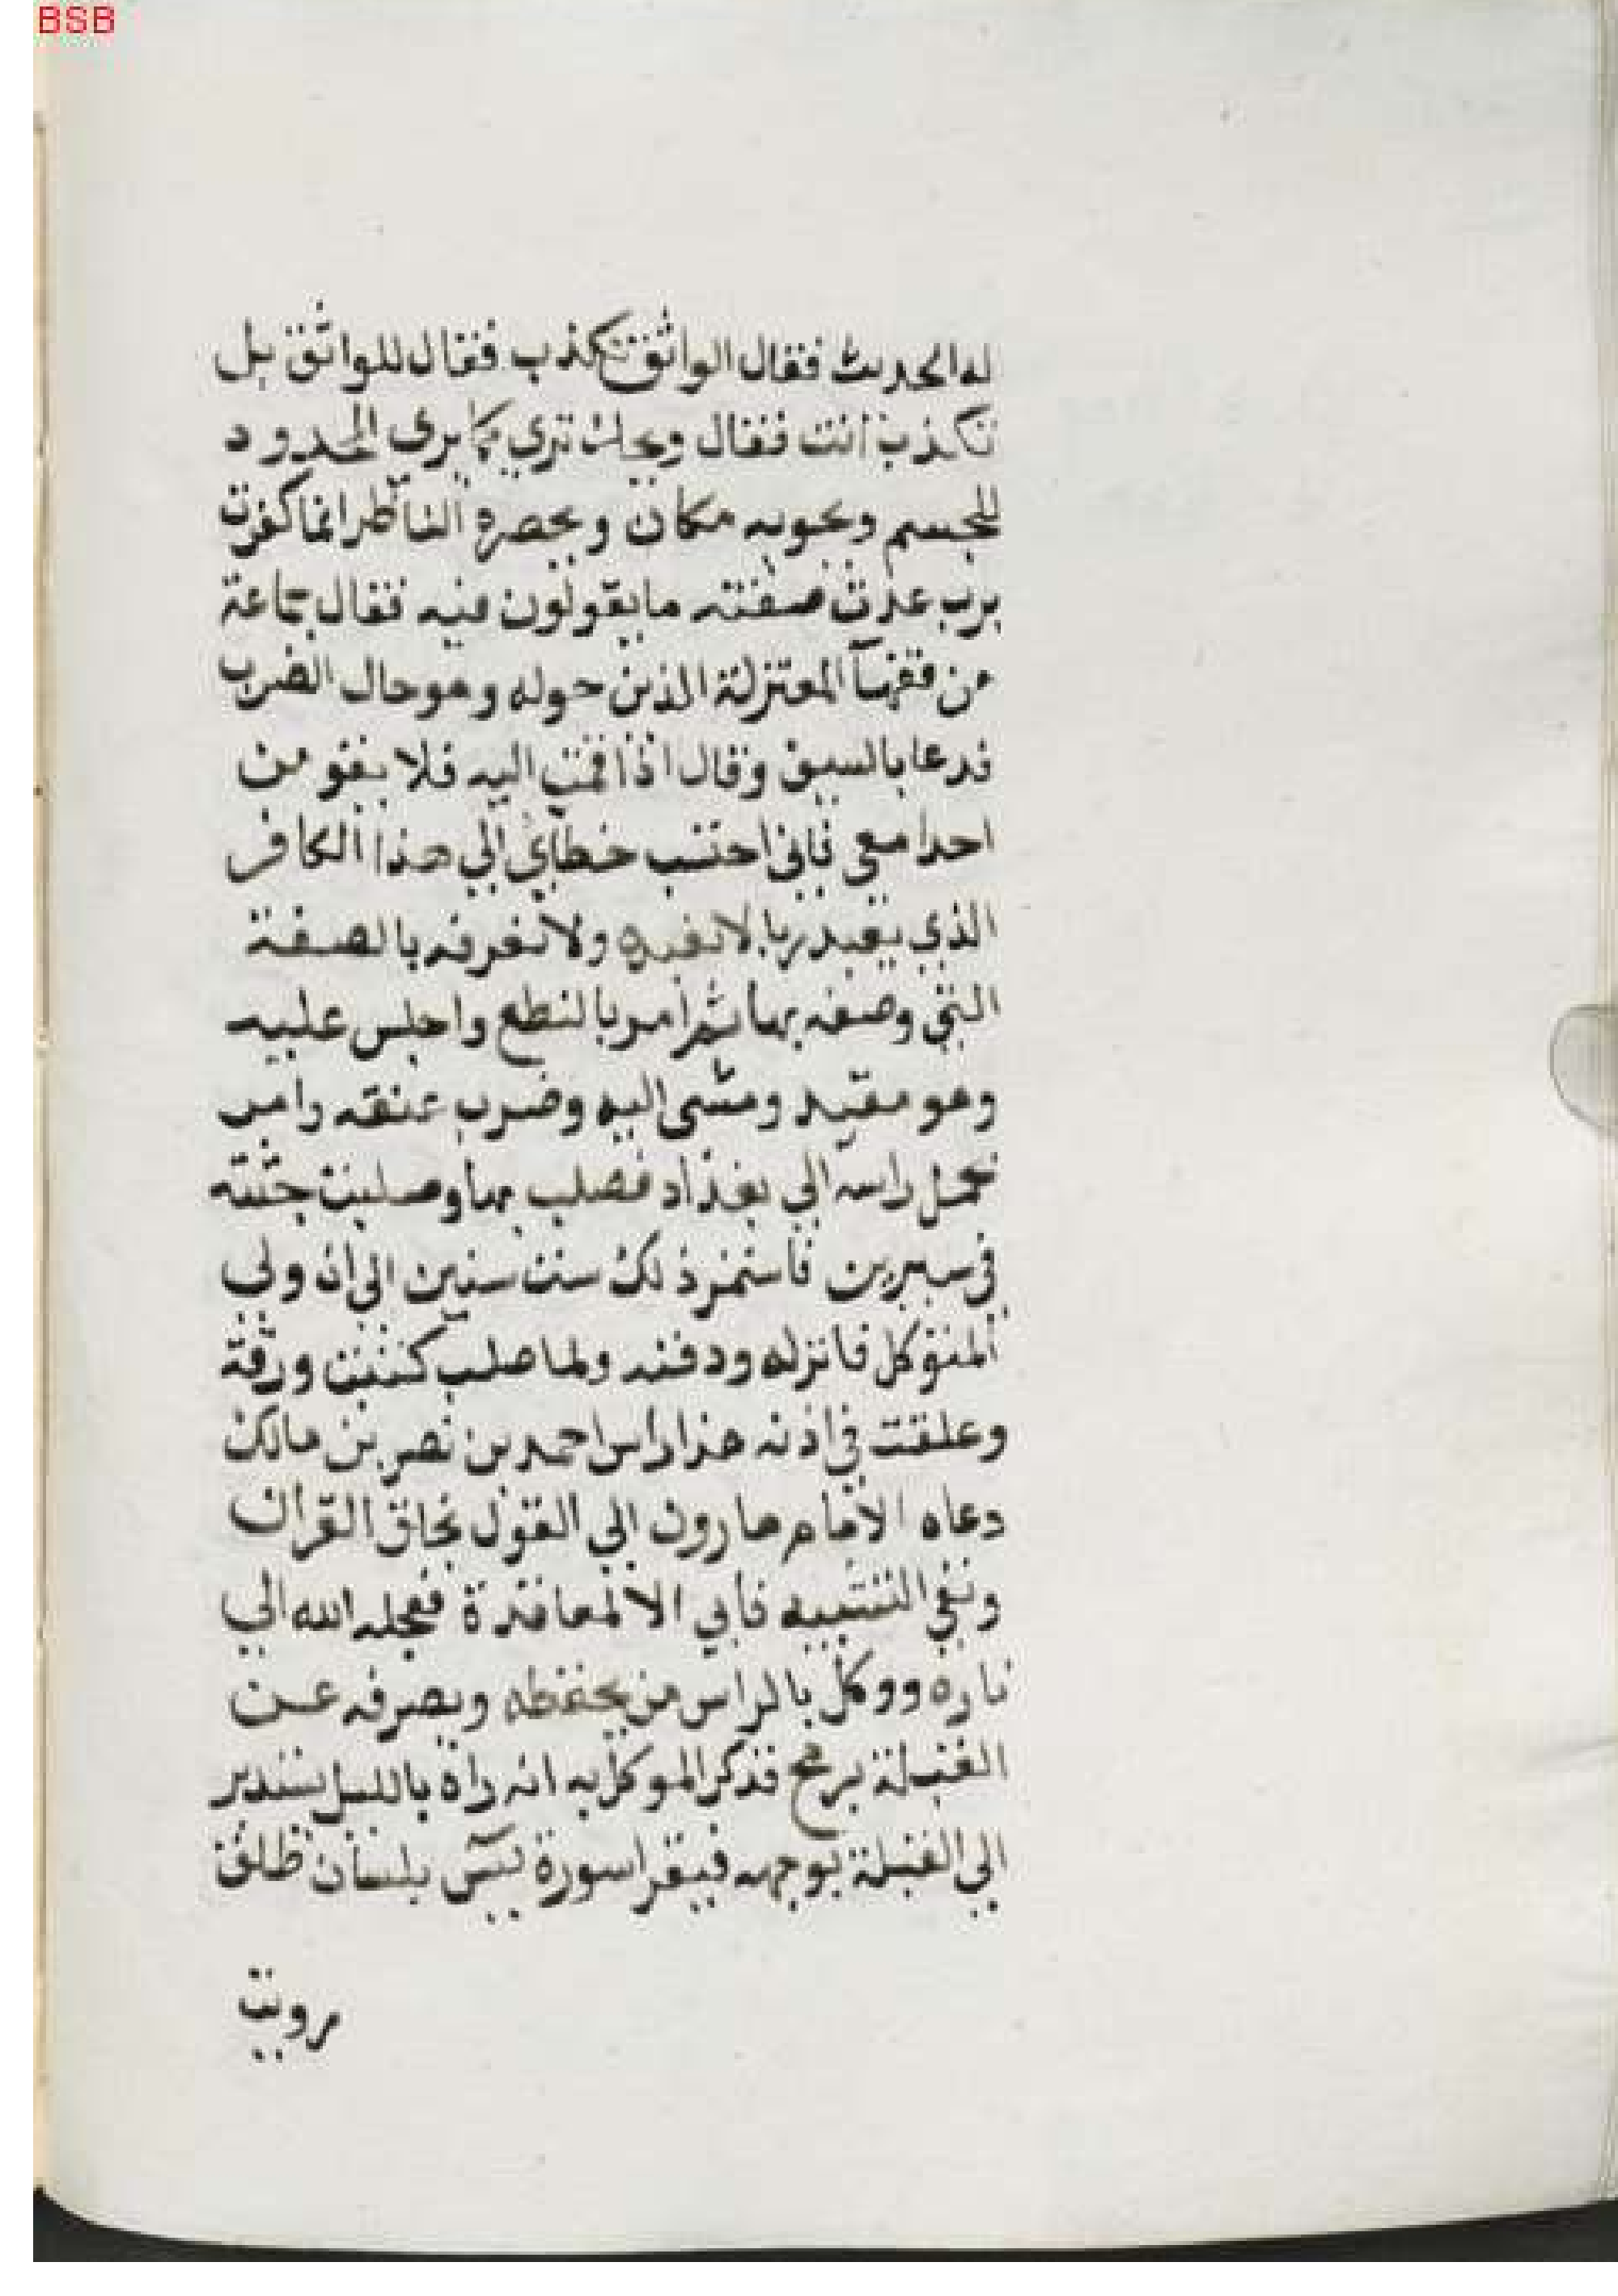 BSB
له الحديث فقال الواثق تكذب فقال للواثق بل
تكذب انت فقال ويحك تري كما يري المحدود
المجسم ويحويه مكان ويحصره الناظر انما كفرت
برب هذه صفته ما يقولون فيه فقال جماعة
من فقهآ المعتزلة الذين حوله وهو حال الضرب
فدعا بالسيف وقال اذا قمت اليه فلا يقومن
احدا معي فاني احتسب خطاي الي هذا الكافر
الذي يعبد ربا لا نعبده ولا نعرفه بالصفة
التي وصفه بها ثم امر بالنطع واجلس عليه
وهو مقيد ومشى اليه وضرب عنقه وامر
بحمل راسه الي بغداد فصلب بها وصلبت جثته
في فاستمر ذلك ست سنين الي ان ولي
المتوكل فانزله ودفنه ولما صلب كتبت ورقة
وعلقت في اذنه هذا راس احمد بن نصر بن مالك
دعاه الامام هارون الي القول بخلق القران
ونفي التشبيه فابي الا المعاندة فعجله الله الي
ناره ووكل بالراس من يحفظه ويصرفه عن
القبلة برمح فذكر الموكل به انه راه بالليل يستدير
الي القبلة بوجهه فيقرا سورة يس بلسان طلق
رويت